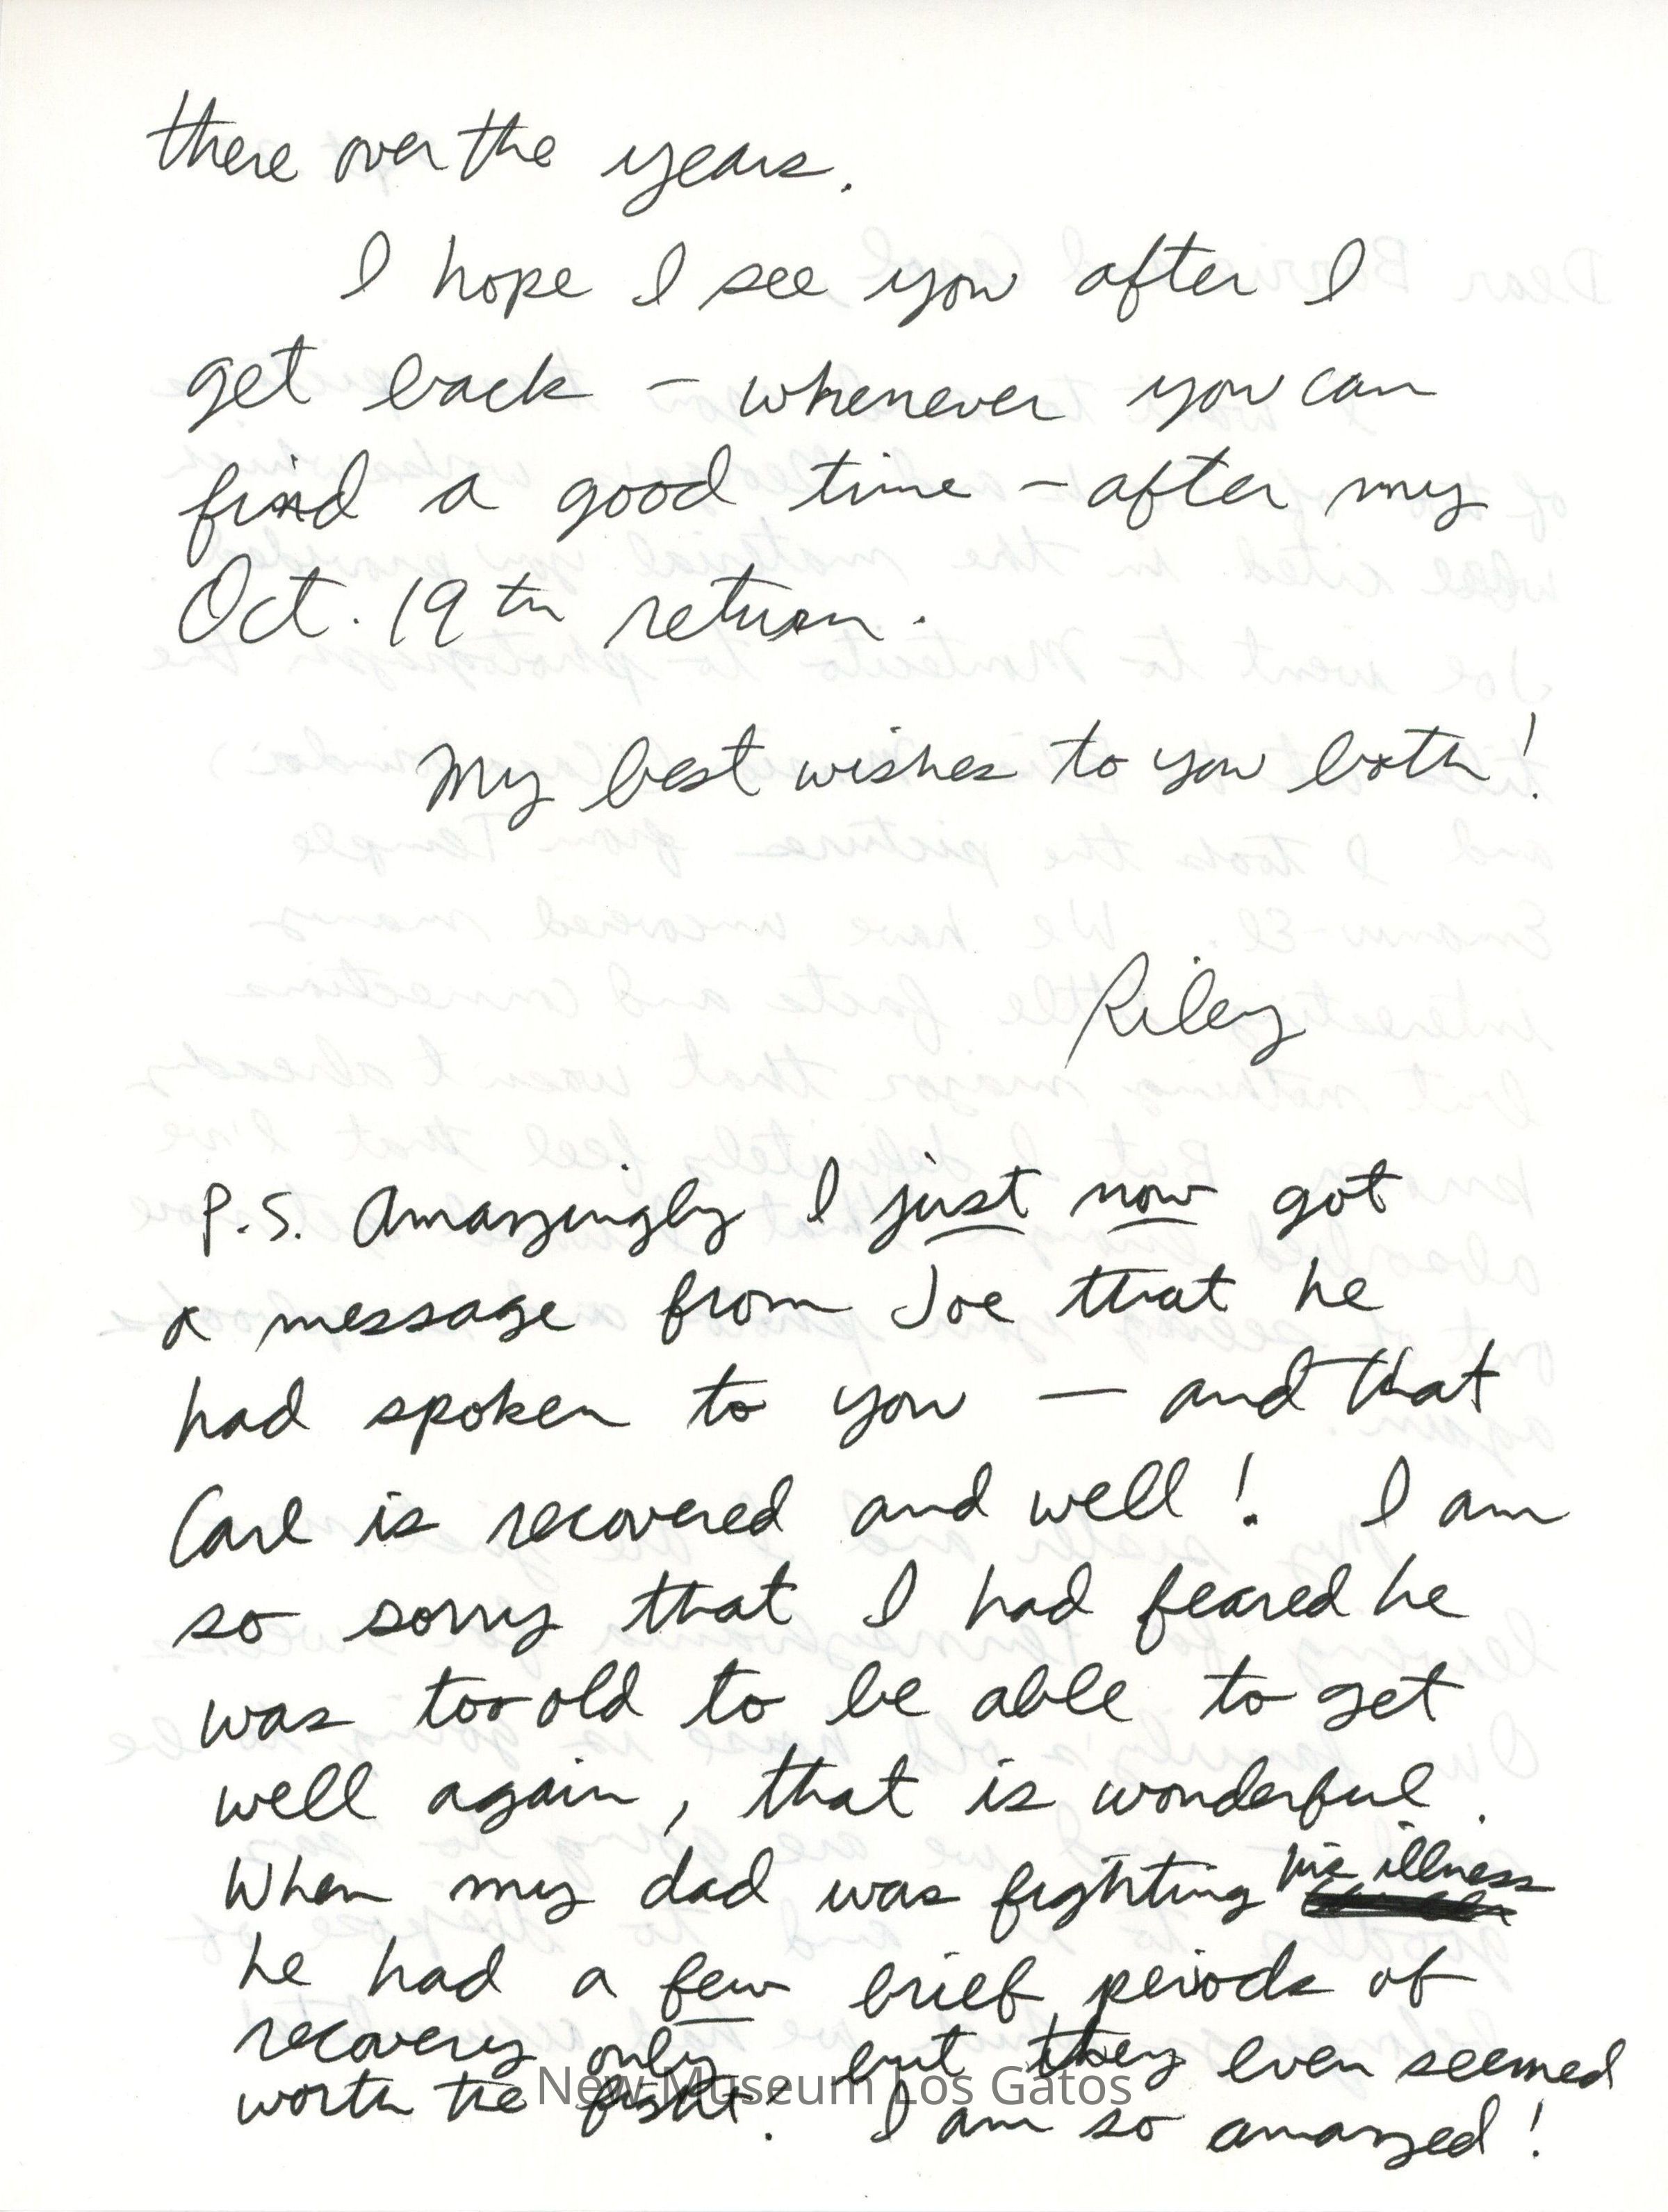 there over the years.
I hope I see you after I
get back – whenever you can
find a good time – after my
Oct. 19th return.
My best wishes to you both!
Riley
P.S. Amazingly I just now got
a message from Joe that he
had spoken to you — and that
Carl is recovered and well! I am
so sorry that I had feared he
was too old to be able to get
well again, that is wonderful.
When my dad was fighting his illness
he had a few brief periods of
recovery only but they even seemed
worth the fight! I am so amazed!
New Museum Los Gatos